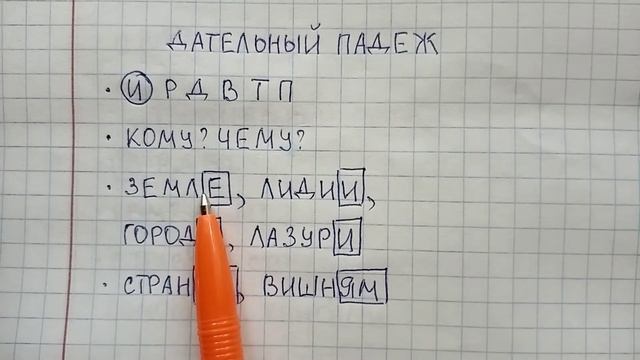 ДАТЕЛЬНЫЙ ПАДЕЖ
• И Р Д В Т П
• КОМУ? ЧЕМУ?
• ЗЕМЛЕ, ЛИДИИ,
, ЛАЗУРИ
• , ВИШНЯМ